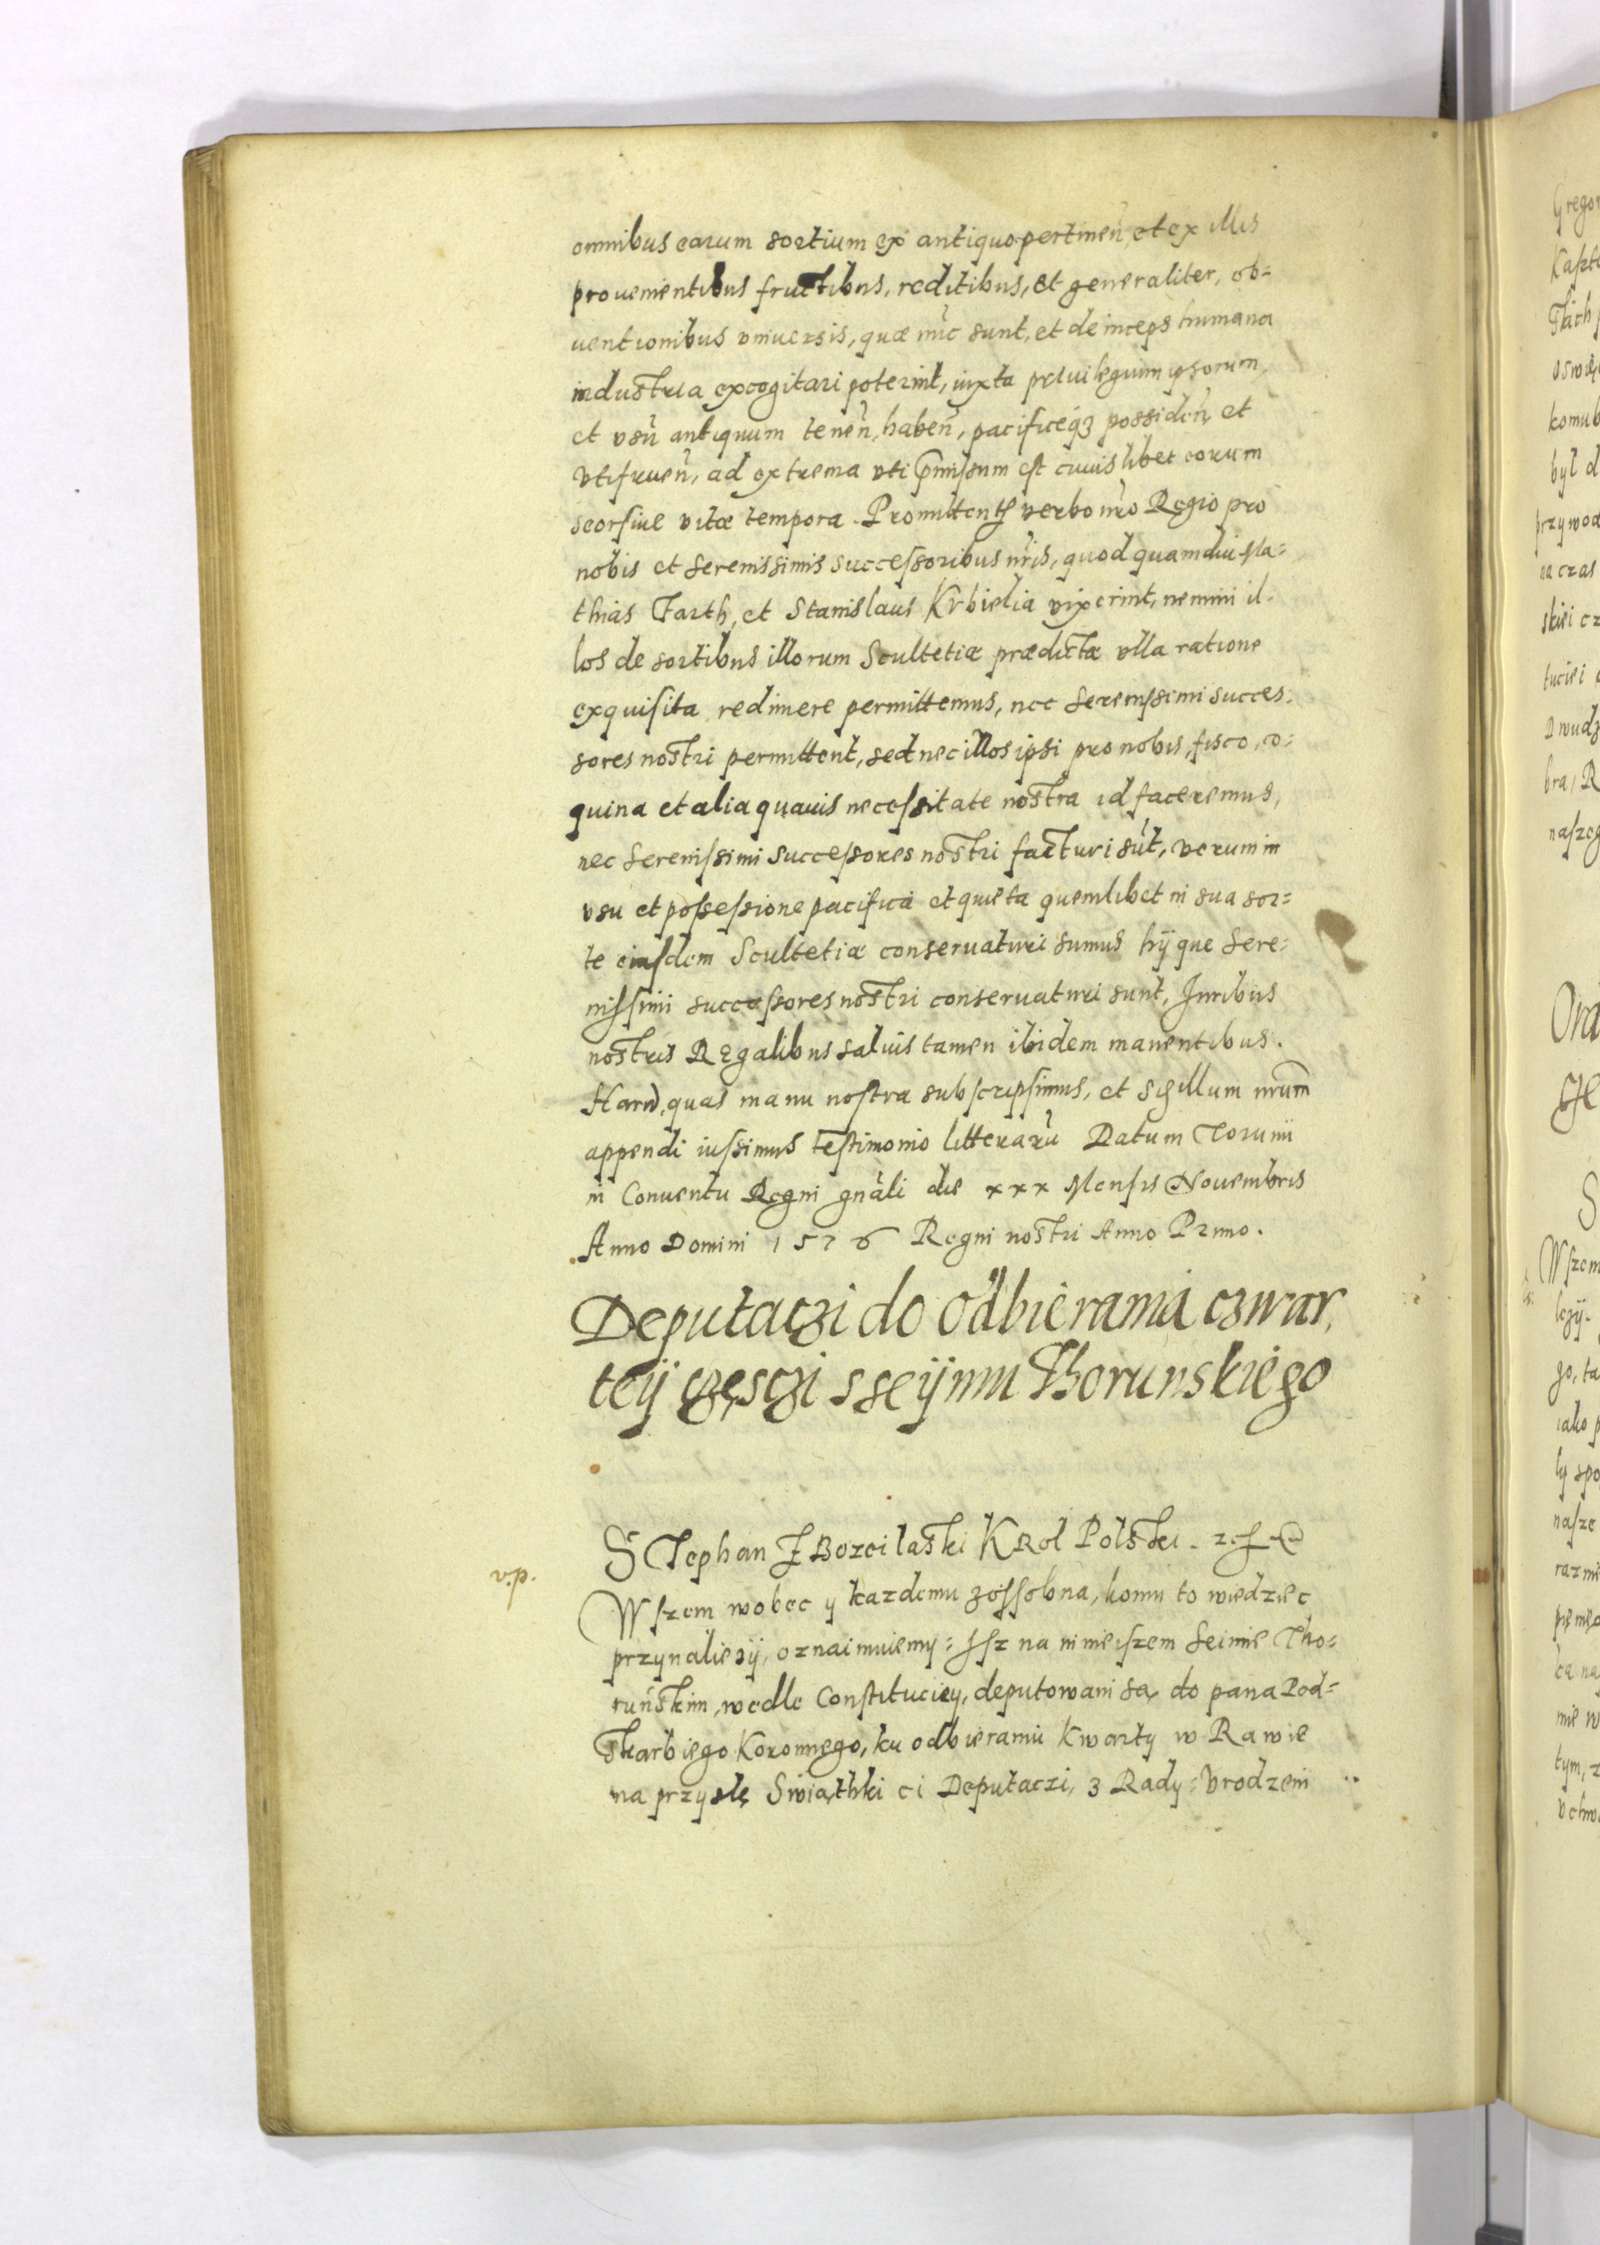 omnibus earum sortium ex antiquo pertineñ, et ex illis
prouenientibus fructibus, reditibus, et generaliter, ob=
uentionibus vniuersis, quæ nūc sunt, et deinceps humana
industria excogitari poterint, iuxta priuilegium ipsorum,
et vsū antiquum teneñ, habeñ, pacificeq3 possideñ, et
vtifrueñ, ad extrema vti p̄missum est cuiuslibet eorum
seorsiue vitæ tempora. Promitten verbo nr̄o Regio pro
nobis et Serenissimis Successoribus nr̄is, quod quamdiu Ma=
thias Farth, et Stanislaus Krbielia vixerint, nemini il=
los de sortibus illorum Scultetiæ prædictæ vlla ratione
exquisita redimere permittemus, nec Serenissimi succes=
sores nostri permittent, sed nec illos ipsi pro nobis, fisco, co=
quina et alia quauis necessitate nostra id faceremus,
nec Serenissimi Successores nostri facturi sūt, verum in
vsu et possessione pacifica et quieta quemlibet in sua sor=
te eiusdem Scultetiæ conseruaturi sumus hÿque Sere=
nissimi successores nostri conseruaturi sunt, Iuribus
nostris Regalibus saluis tamen ibidem manentibus.
Harū, quas manu nostra subscripsimus, et Sigillum nrum̄
appendi iussimus testimonio litterarū Datum Torunii
in Conuentu Regni gnāli die xxx Mensis Nouembris
Anno Domini 1576 Regni nostri Anno Primo.
Deputaczi do odbierania czwar,
teÿ częsczi s seÿmu Thorunskiego
.d.v.
Stephan Z Bozei laski Krol Polski.
Wszem wobec y kazdemu zossobna, komu to wiedziec
przynaliezÿ, oznaimuiemy: Isz na ninieiszem Seimie Tho=
ruńskim, wedle Constituciey, deputowani są do pana Pod=
skarbiego Koronnego, ku odbieraniu Kwarty w Rawie
na przyslę Swiąthki ci Deputaczi, z Rady: Vrodzeni